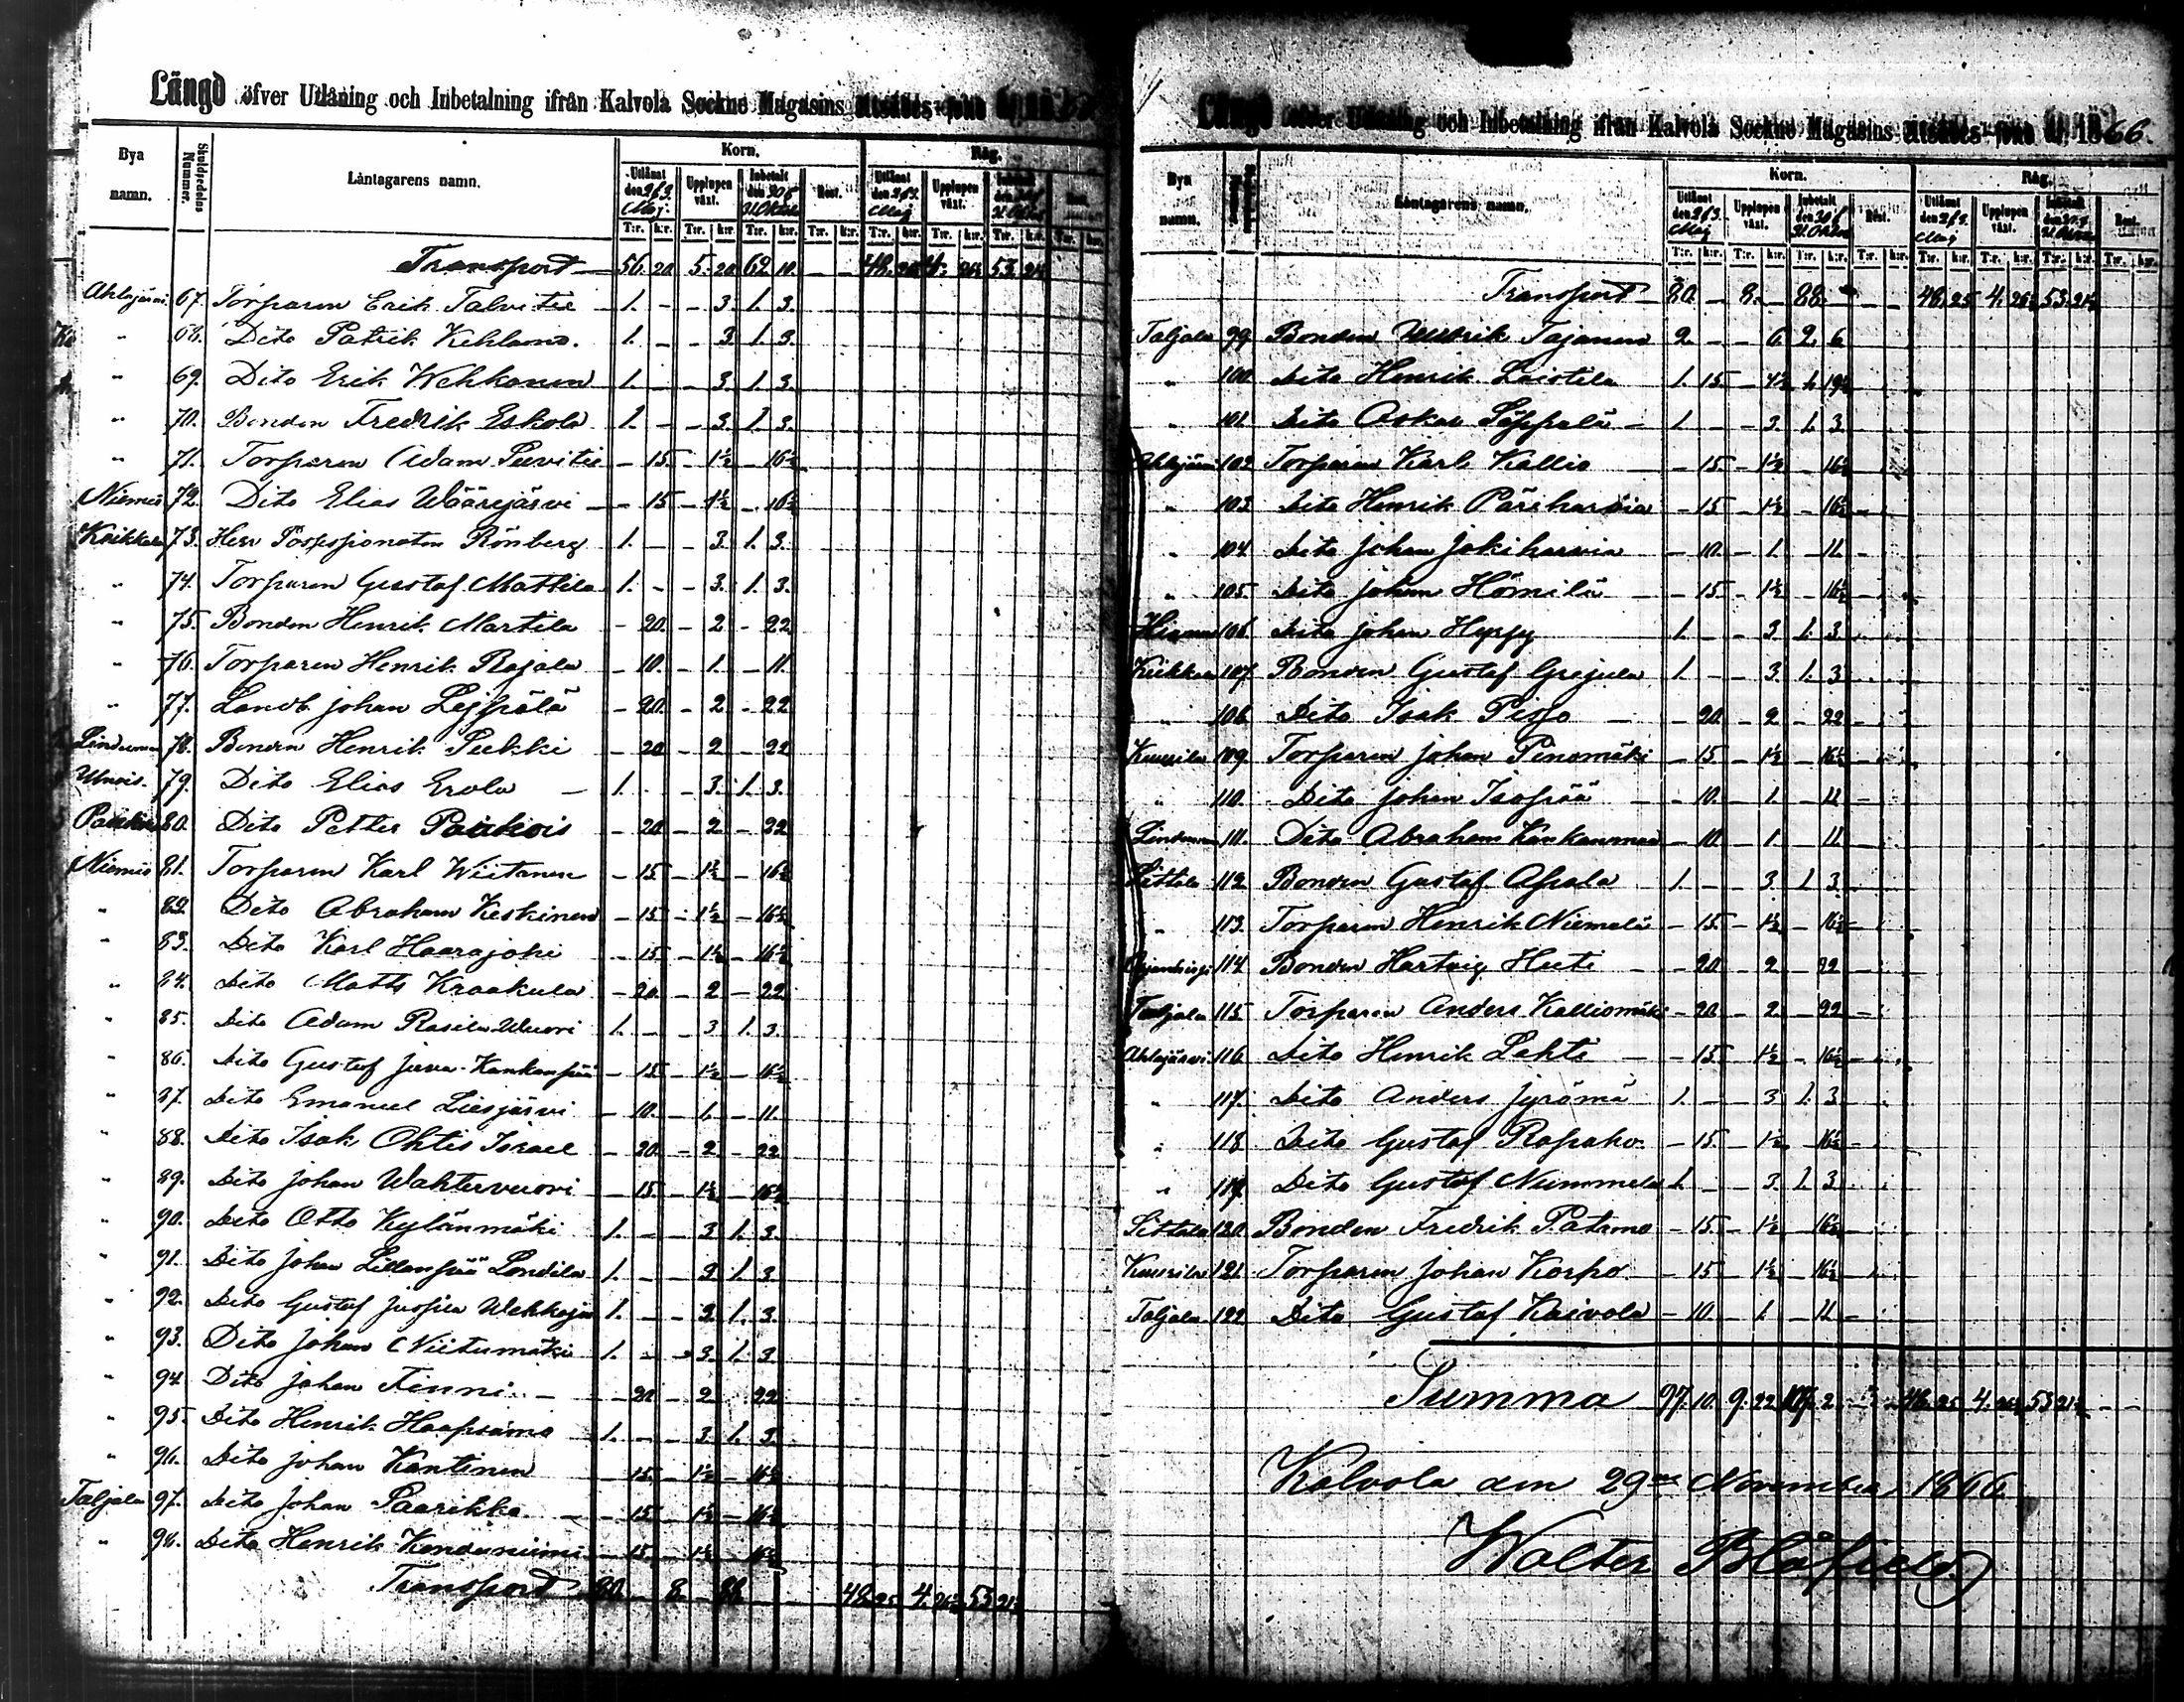 Längd öfver Utlåning och Inbetalning ifrån Kalvola Sockne Magasins
Bya namn. Skuldsedelns Nummer. Låntagarens namn. Korn. Råg.
Utlånt den 2 & 3 Maj Upplupen växt. Inbetalt den 30 & 31 Oktober Rest. Utlånt den 2 & 3 Maj Upplupen växt. Inbetalt Rest.
T:r. k:r. T:r. k:r. T:r. k:r. T:r. k:r. T:r. k:r. T:r. k:r. T:r. k:r. T:r. k:r.
Transport 56. 20. 5. 20. 62 10. — — 48. 25 4. 26½ 53. 21½
Ahlajärvi 67. Torparen Erik Talvitie 1. — — 3. 1. 3.
" 68. Dito Patrik Kehlamo. 1. — — 3. 1. 3.
" 69. Dito Erik Wehkonen 1. — — 3. 1. 3.
" 70. Bonden Fredrik Eskola 1. — — 3. 1. 3.
" 71. Torparen Adam Peevitie — 15. — 1½ — 16½
Niemis 72. Dito Elias Wäärejärvi — 15 — 1½ — 16½
Keikkala 73. Herr Possessionaten Rönberg 1. — — 3. 1. 3.
" 74. Torparen Gustaf Mattila 1. — — 3. 1. 3.
" 75. Bonden Henrik Martila — 20. — 2 — 22
" 76. Torparen Henrik Rajala — 10. — 1. — 11.
" 77. Landb. Johan Leppälä — 20. — 2 — 22
78. Bonden Henrik Pukki — 20 — 2 — 22
79. Dito Elias Erola — 1. — 3. 1. 3.
80. Dito Petter Paukois — 20 — 2 — 22
Niemis 81. Torparen Karl Wiitanen — 15 — 1½ — 16½
" 82. Dito Abraham Keskinen — 15 — 1½ — 16½
" 83. Dito Karl Haarajoki — 15 — 1½ — 16½
" 84. Dito Matts Kraakula — 20. — 2 — 22
" 85. Dito Adam Rasila Wuori 1. — — 3. 1. 3.
" 86. Dito Gustaf Juva-Kankanpää — 15 — 1½ — 16½
" 87. Dito Emanuel Liesjärvi — 10. — 1. — 11.
" 88. Dito Isak Ohtis Israel — 20. — 2 — 22
" 89. Dito Johan Wahtervuori — 15. — 1½ — 16½
" 90. Dito Otto Kylänmäki 1. — — 3 1. 3.
" 91. Dito Johan Lillanpää Londila 1. — — 3 1. 3
" 92. Dito Gustaf 1. — — 3. 1. 3.
" 93. Dito Johan Niitumäki 1. — — 3. 1. 3
" 94. Dito Johan Finni — — 20 — 2 22
" 95. Dito Henrik Haapsamo 1. — — 3 1. 3.
" 96. Dito Johan Kantinen — 15. — 1½ — 16½
Taljala 97. Dito Johan Paarikka — 15. — 1½ — 16½
" 98. Dito Henrik — 15. — 1½ — 16½
Transport 80. — 8. — 88. — — 48. 25 4. 26½ 53 21½
Längd öfver Utlåning och Inbetalning ifrån Kalvola Sockne Magasins år 1866.
Bya namn. Låntagarens namn. Korn. Råg.
Utlånt den 2 & 3 Maj Upplupen växt. Inbetalt den 30 & 31 Oktober Rest. Utlånt den 2 & 3. Maj Upplupen växt. Inbetalt Rest.
T:r. k:r. T:r. k:r. T:r. k:r. T:r. k:r. T:r. k:r. T:r. k:r. T:r. k:r. T:r. k:r.
Transport 80. — 8. — 88. — — 48. 25 4. 26½ 53. 21½
Taljala 99 Bonden Tajanen 2. — — 6 2. 6
" 100. Dito Henrik Laistila 1. 15 — 4½ 1. 19½
" 101. Dito Oskar Seppälä — 1 — — 3. 1. 3.
Ahlajärvi 102. Torparen Karl Kallio — 15 — 1½ — 16½
" 103. Dito Henrik Päreharvia — 15 — 1½ — 16½
" 104. Dito Johan Jokiharvia — 10. — 1. — 11. —
" 105. Dito Johan Hömilä — 15 — 1½ — 16½
106. Dito Johan Hyppy 1. — — 3 1. 3
Keikkala 107. Bonden Gustaf Grejula 1. — — 3. 1. 3
" 108. Dito Isak Pispo — 20. — 2 — 22 —
Kuurila 109. Torparen Johan Pinomäki — 15 — 1½ — 16½
" 110. Dito Johan Isopää — 10. — 1. — 11 —
111. Dito Abraham Kankanmaa — 10. — 1 — 11.
Sittala 112. Bonden Gustaf Apala 1. — — 3 1. 3
" 113. Torparen Henrik Niemelä — 15. — 1½ — 16½
114. Bonden Hartvig Heeti — 20 — 2 — 22
Taljala 115. Torparen Anders Kalliomäki — 20. — 2 — 22
Ahlajärvi 116. Dito Henrik Lehti — 15. — 1½ — 16½
" 117. Dito Anders Jyrämä 1. — — 3 1. 3
" 118. Dito Gustaf Rapaho — 15. — 1½ — 16½
" 119. Dito Gustaf Nummela 1. — — 3. 1. 3
Sittala 120. Bonden Fredrik Patamo — 15 — 1½ — 16½
Kuurila 121. Torparen Johan Korpo — 15 — 1½ — 16½
Taljala 122 Dito Gustaf Kaivola — 10. — 1. — 11. —
Summa 97. 10. 9. 22 107. 2. — — 48. 25 4. 26½ 53 21½ — —
Kalvola den 29de November 1866
Walter Blåfield